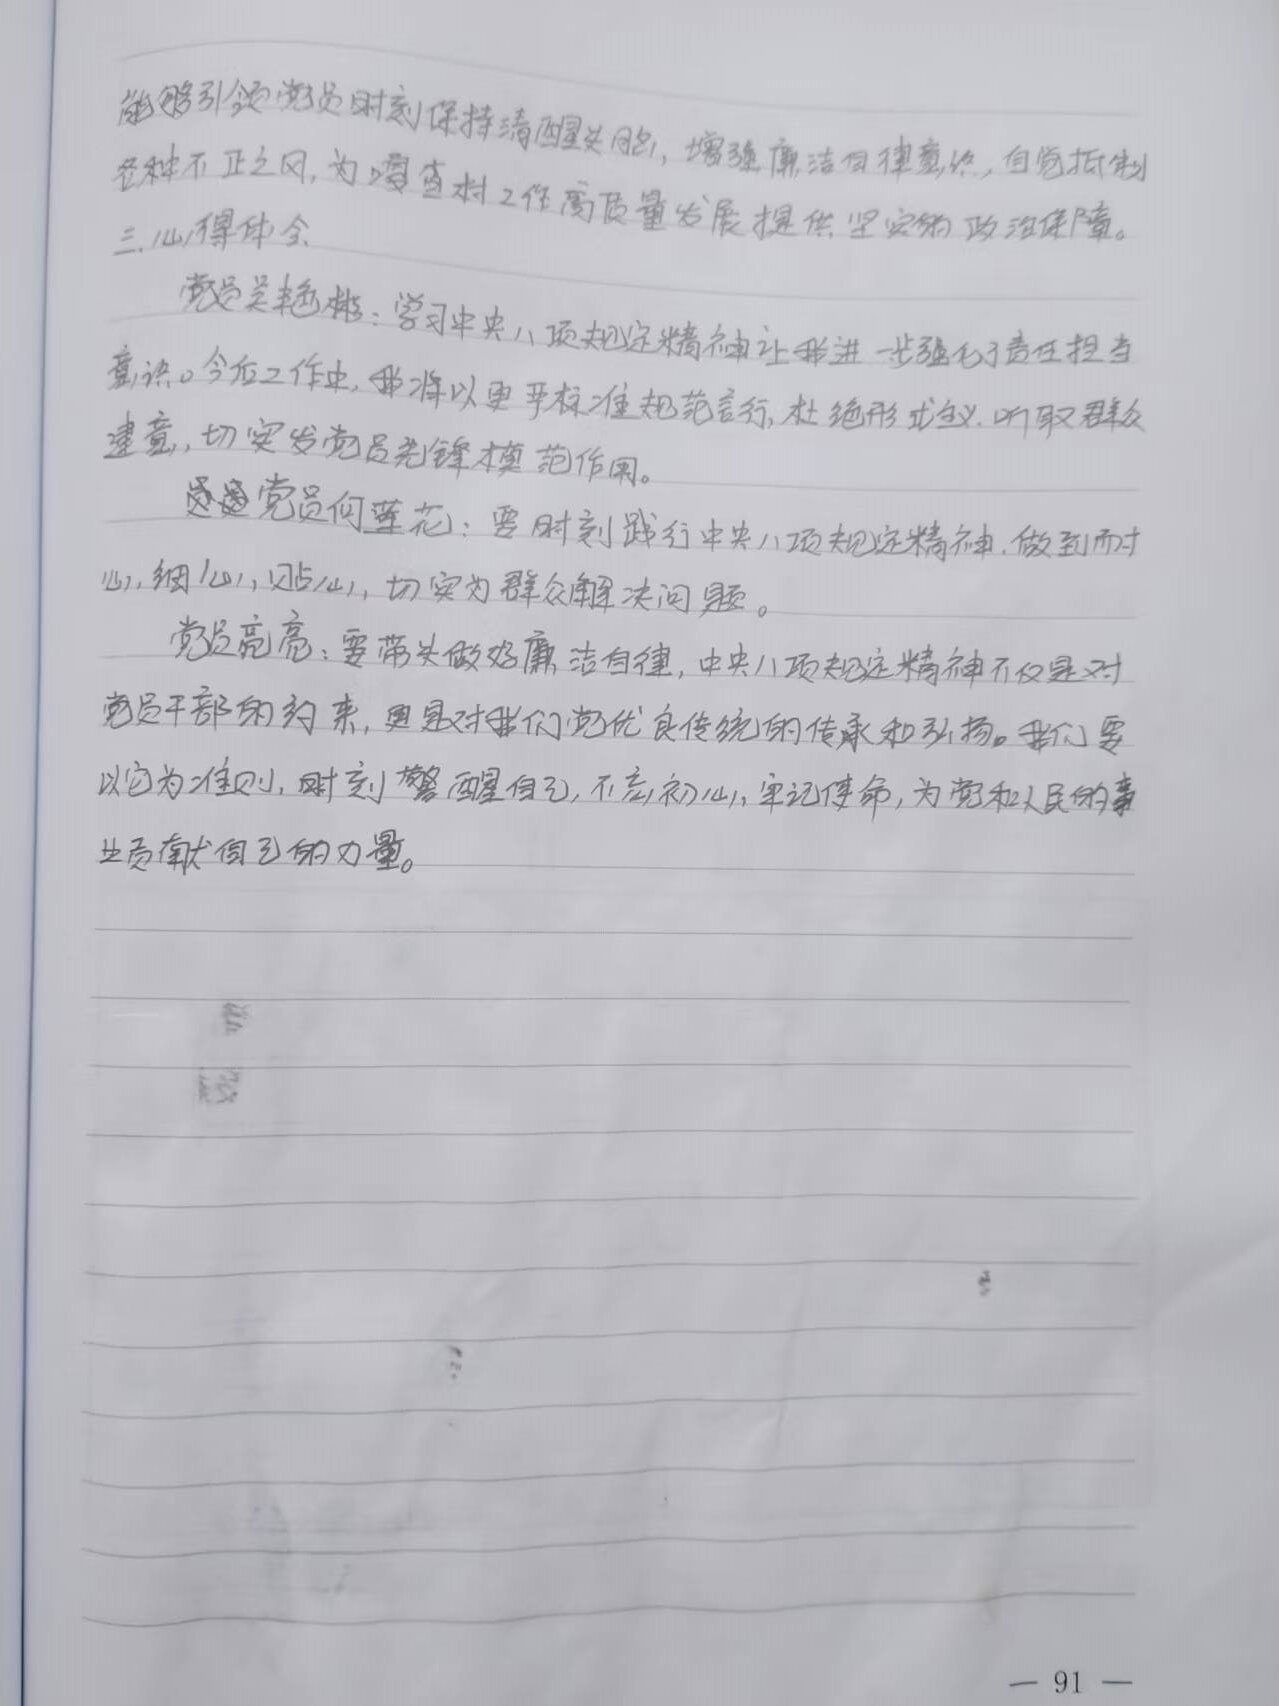 能够引领党员时刻保持清醒头脑，增强廉洁自律意识，自觉抵制
各种不正之风，为嘎查村工作高质量发展提供坚实的政治保障。
三.心得体会
党员吴艳梅：学习中央八项规定精神让我进一步强化了责任担当
意识。今后工作中，我将以更严标准规范言行，杜绝形式主义.听取群众
建意，切实发党员先锋模范作用。
党员何莲花：要时刻践行中央八项规定精神.做到耐
心，细心，贴心，切实为群众解决问题。
党员亮亮：要带头做好廉洁自律，中央八项规定精神不仅是对
党员干部的约束，更是对我们党优良传统的传承和弘扬。我们要
以它为准则，时刻警醒自己，不忘初心，牢记使命，为党和人民的事
业贡献自己的力量。
— 91 —